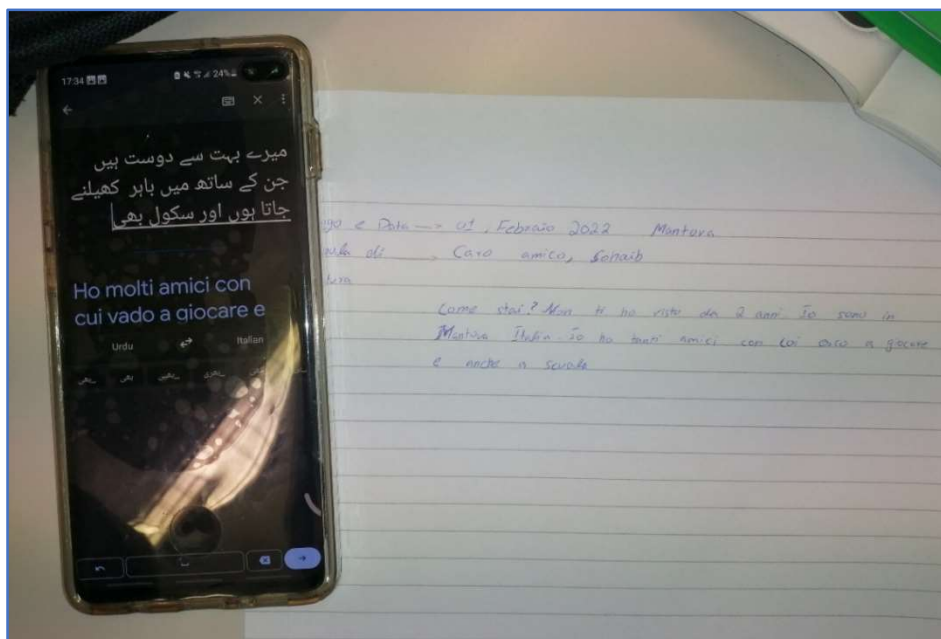 17:34
24%
میرے بہت سے دوست ہیں
جن کے ساتھ میں باہر کھیلنے
جاتا ہوں اور سکول بھی
Ho molti amici con
cui vado a giocare e
Urdu
Italian
بھی
e Data → 01, Febraio 2022 Mantova
di Caro amico, Sohaib
Come stai? Non ti ho visto da 2 anni. Io sono in
Mantova Italia. Io ho tanti amici con cui esco a giocare
e anche a scuola